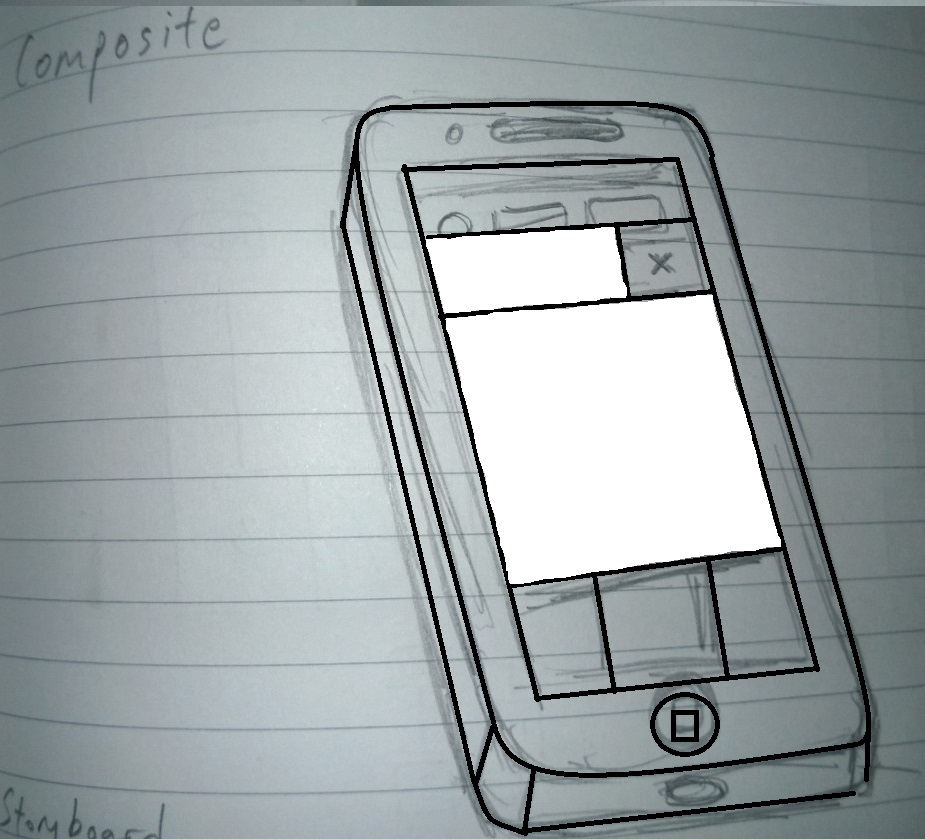 Composite
Storyboard